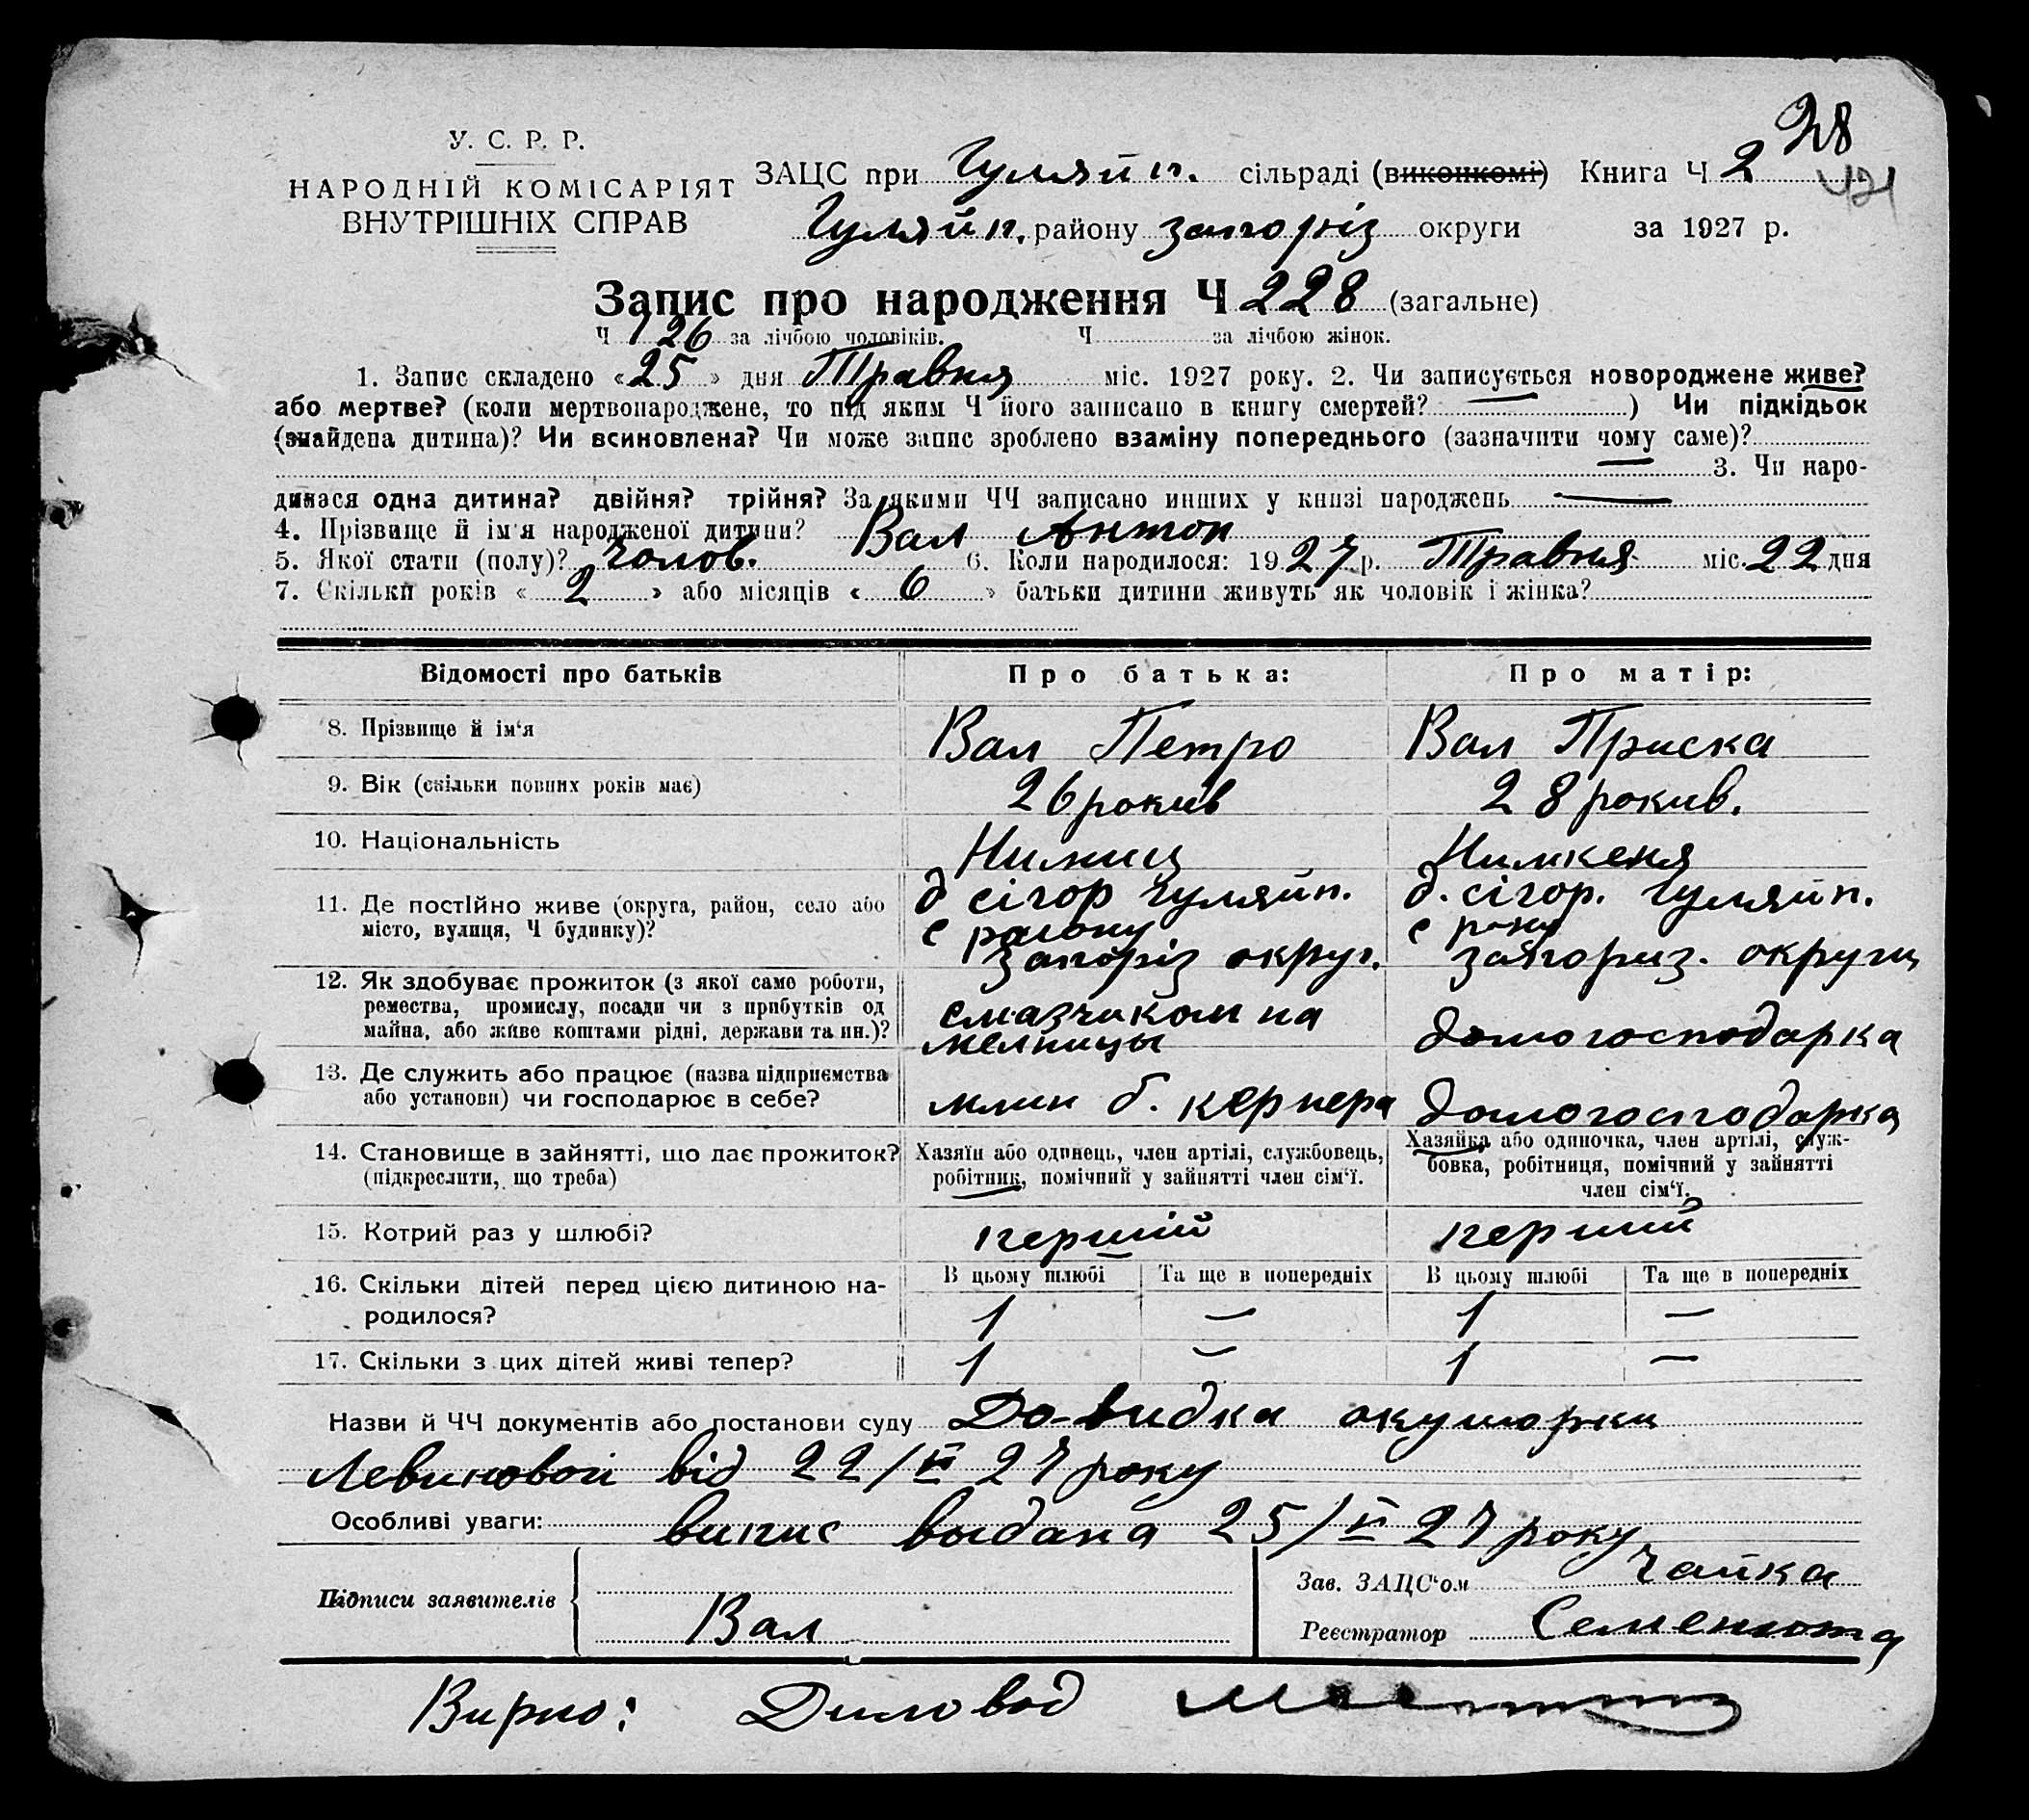 28
У. С. Р. Р.
НАРОДНІЙ КОМІСАРІЯТ
ВНУТРІШНІХ СПРАВ
ЗАЦС при Гуляйп. сільраді (виконкомі) Книга Ч 2
421
Гуляйп. району запоріз округи за 1927 р.
Запис про народження Ч 228 (загальне)
Ч 126 за лічбою чоловіків. Ч за лічбою жінок.
1. Запис складено «25» дня Травня міс. 1927 року. 2. Чи записується новороджене живе?
або мертве? (коли мертвонароджене, то під яким Ч його записано в книгу смертей? —) Чи підкідьок
(знайдена дитина)? Чи всиновлена? Чи може запис зроблено взаміну попереднього (зазначити чому саме)?
— 3. Чи наро-
дилася одна дитина? двійня? трійня? За якими ЧЧ записано инших у книзі народжень —
4. Прізвище й ім'я народженої дитини? Вал Антон
5. Якої стати (полу)? Чолов. 6. Коли народилося: 1927 р. Травня міс. 22 дня
7. Скільки років «2» або місяців «6» батьки дитини живуть як чоловік і жінка?
Відомості про батьків Про батька: Про матір:
8. Прізвище й ім'я Вал Петро Вал Приска
9. Вік (скільки повних років має) 26 рокив 28 рокив.
10. Національність Нимиц Нимкеня
11. Де постійно живе (округа, район, село або місто, вулиця, Ч будинку)?
д сігор гуляйп.
с району
Запоріз округ.
д. сігор. гуляйп.
с
запориз. округи
12. Як здобуває прожиток (з якої само роботи,
ремества, промислу, посади чи з прибутків од
майна, або живе коштами рідні, держави та ин.)?
смазчиком на
мелницы
Домогосподарка
13. Де служить або працює (назва підприємства
або установи) чи господарює в себе?
млин б. кернера Домогосподарка
14. Становище в зайнятті, що дає прожиток?
(підкреслити, що треба)
Хазяїн або одинець, член артілі, службовець,
робітник, помічний у зайнятті член сім'ї.
Хазяйка або одиночка, член артілі, служ-
бовка, робітниця, помічний у зайнятті
член сім'ї.
15. Котрий раз у шлюбі? перший перший
16. Скільки дітей перед цією дитиною на-
родилося?
В цьому шлюбі Та ще в попередніх В цьому шлюбі Та ще в попередніх
1 — 1 —
17. Скільки з цих дітей живі тепер? 1 — 1 —
Назви й ЧЧ документів або постанови суду До-видка окушорки
Левиновой від 22/V 27 року
Особливі уваги: випис выдана 25/V 27 року
Підписи заявителів
Вал
Зав. ЗАЦС'ом Чайка
Реєстратор Семенюта
Вирно: Диловод